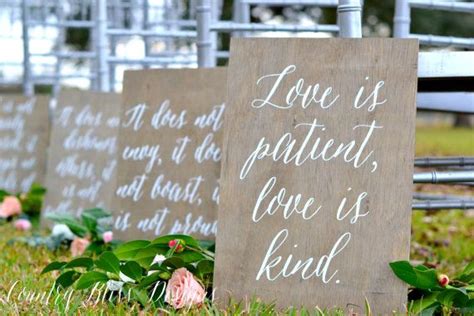 Love is
patient,
love is
kind.
It does not
envy, it does
not boast, it
is not proud
It does not
dishonor
others, it
Country Bliss Designs